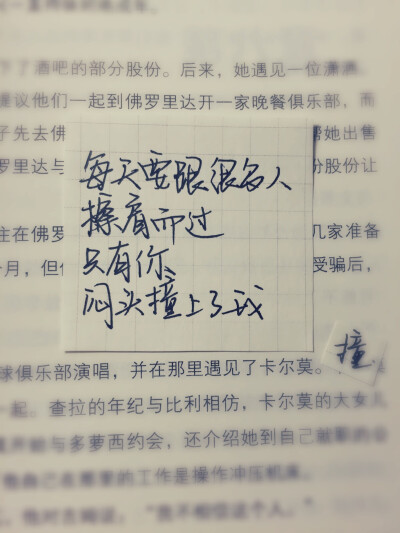 下了酒吧的部分股份。后来，她遇见一位潇洒
建议他们一起到佛罗里达开一家晚餐俱乐部，而
子先去佛
帮她出售
罗里达与
份股份让
每天要跟很多人
擦肩而过
只有你
闷头撞上了我
住在佛罗
几家准备
个月，但
受骗后，
撞
球俱乐部演唱，并在那里遇见了卡尔莫。
一起。查拉的年纪与比利相仿，卡尔莫的大女儿
开始与多萝西约会，还介绍她到自己就职的公
他自己在那里的工作是操作冲压机床。
他对吉姆说，“我不相信这个人。”